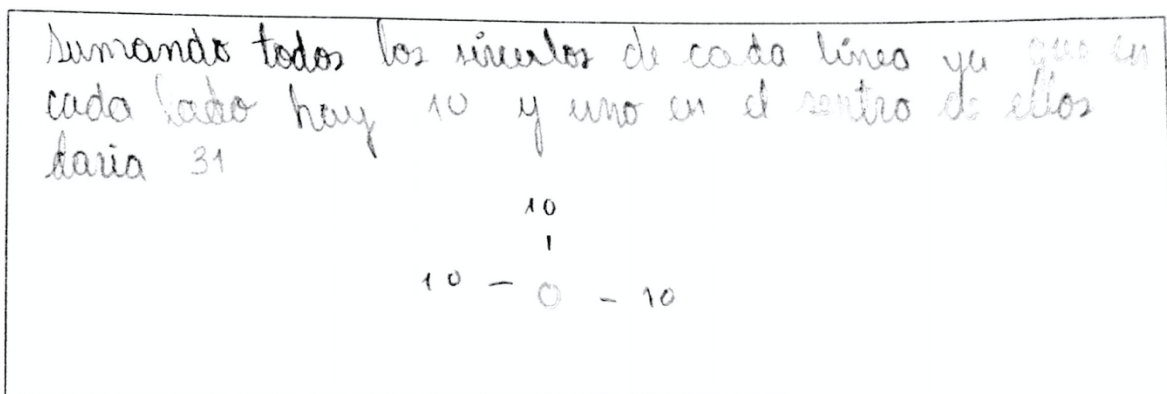 Sumando todos los sírculos de cada línea ya que en
cada lado hay 10 y uno en el sentro de ellos
daria 31
10
10 - O - 10